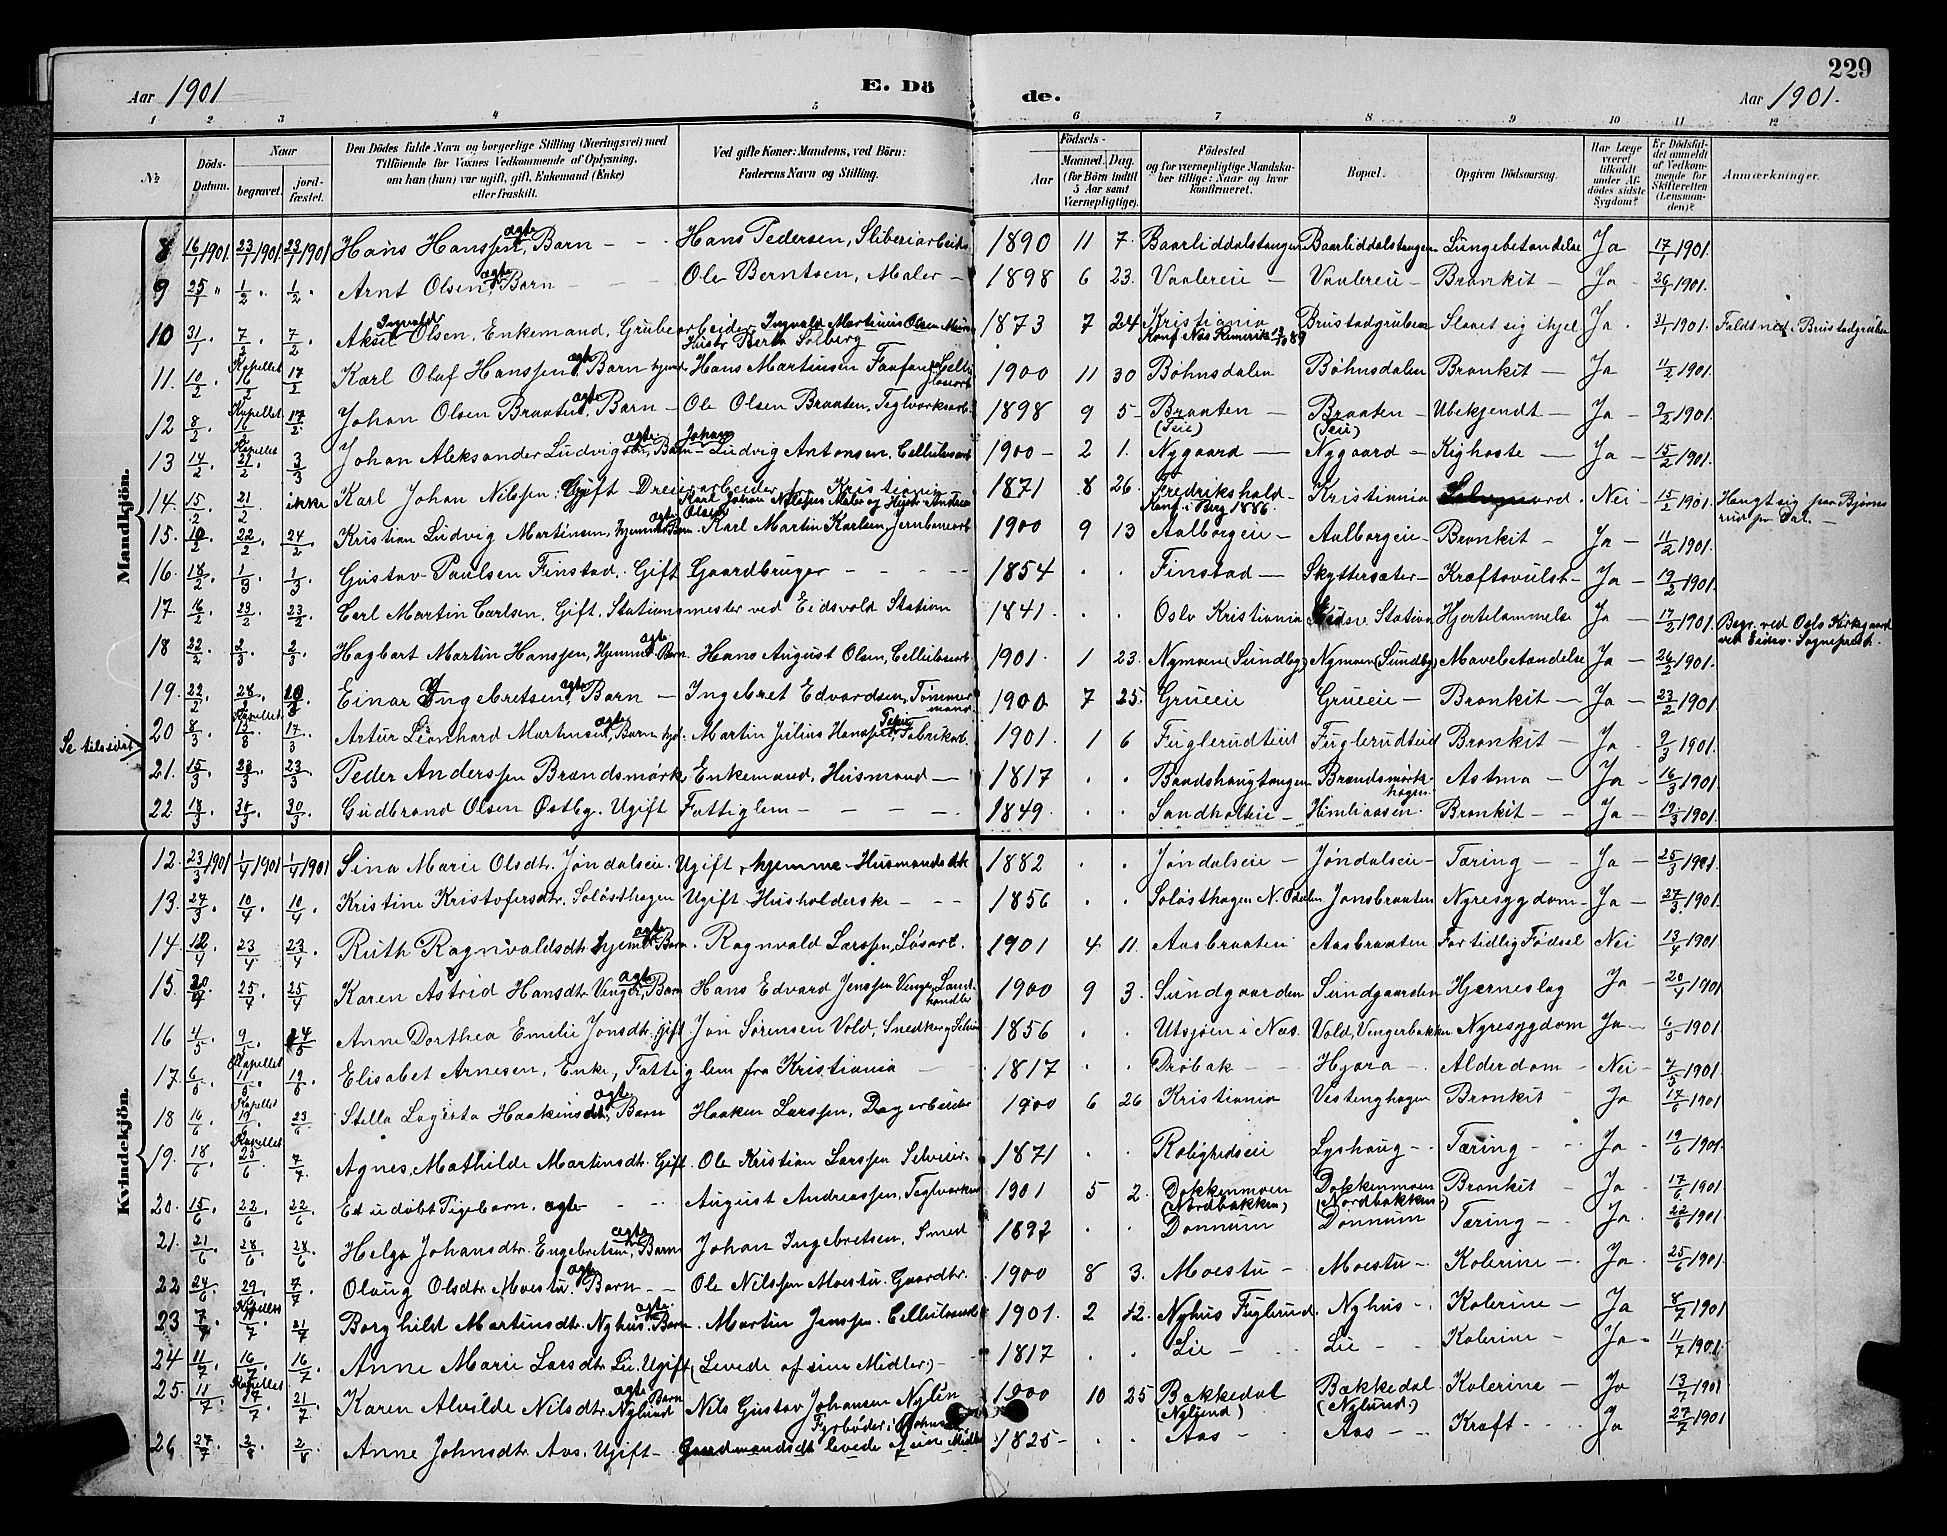 229
Aar 1901
E. Dö
de.
Aar 1901.
1 2 3 4 5 6 7 8 9 10 11 12
№
Döds-Datum.
Naar
begravet.
jord-fæstet.
Den Dödes fulde Navn og borgerlige Stilling (Næringsvei) med
Tilföiende for Voxnes Vedkommende af Oplysning,
om han (hun) var ugift, gift, Enkemand (Enke)
eller fraskilt.
Ved gifte Koner: Mandens, ved Börn:
Faderens Navn og Stilling.
Födsels-
Aar
Maaned. Dag.
(for Börn indtil
5 Aar samt
Værnepligtige).
Födested
og for værnepligtige Mandska-
ber tillige: Naar og hvor
konfirmeret.
Bopæl.
Opgiven Dödsaarsag.
Har Læge
været
tilkaldt
under Af-
dödes sidste
Sygdom?
Er Dödsfal-
det anmeldt
af Vedkom-
mende for
Skifteretten
(Lensman-
den)?
Anmærkninger.
Mandkjön.
8 16/1 1901 23/1 1901 23/1 1901 Hans Hanssen, ægte Barn Hans Pedersen, Sliberiarbeids. 1890 11 7 Baarliddalstangen Baarliddalstangen Lungebetændelse Ja 17/1 1901
9 25/1 " 1/2 " 1/2 " Arnt Olsen, ægte Barn Ole Berntsen, Maler 1898 6 23. Vaalereie Vaalereie Bronkit Ja 26/1 1901.
10 31/1 7/2 7/2 Aksel Ingvald Olsen, Enkemand, Grubearbeider Ingvald Martinius Olsen Hustr Berth Solberg 1873 7 24 Kristiania Konf. Næs Romerike 13/10 89 Brustadgruben Slaaet sig ihjel Ja 31/1 1901. Faldt ned i Brustadgruben
11. 10/2 Kapellet 16/2 17/2 Karl Olaf Hanssen, ægte Barn hjemd. Hans Martinsen Fanfan Cellulosearb 1900 11 30 Böhnsdalen Böhnsdalen Bronkit Ja 11/2 1901.
12 8/2 Kapellet 16/2 17/2 Johan Olsen Braaten, ægte Barn Ole Olsen Braaten, Teglverksarb. 1898 9 5 Braaten (Teie) Braaten (Teie) Ubekjendt Ja 9/2 1901.
13 14/2 Kapellet 21/2 3/3 Johan Aleksander Ludvigsen, ægte Barn Johan Ludvig Antonsen, Cellulosearb 1900 2 1. Nygaard Nygaard Kighoste Ja 15/2 1901.
14. 15/2 21/2 ikke Karl Johan Nilssen. Gift Dreierarbeider fra Kristiania Karl Johan Nilssen Maler og Hustr Andrea Olsen 1871 8 26. Fredrikshald Konf i Berg 1886. Kristiania Selvmord. Nei 15/2 1901. Hængt sig paa Bjørnerud paa Dal.
15. 10/2 22/2 24/2 Kristian Ludvig Martinsen, hjemmed. ægte Barn Karl Martin Karlsen, Jernbanearb 1900 9 13 Aalborgeie Aalborgeie Bronkit Ja 11/2 1901.
16. 18/2 1/3 1/3 Gustav Paulsen Finstad. Gift Gaardbruger 1854 . . Finstad Skyttersæter Kræftsvulst Ja 19/2 1901.
17. 16/2 23/2 23/2 Carl Martin Carlsen, Gift, Stationsmester ved Eidsvold Station 1841 . . Oslo Kristiania Eidsv. Station Hjertelammelse Ja 17/2 1901. Begr. ved Oslo Kirkegaard ved Eidsv. Sognepræst.
18 22/2 2/3 2/3 Hagbart Martin Hanssen, Hjemmed. ægte Barn Hans August Olsen, Cellulosearb 1901. 1 23. Nymoen (Sundby) Nymoen (Sundby) Mavebetændelse Ja 26/2 1901.
19. 22/2 28/2 10/3 Einar Yngebretsen, ægte Barn Ingebret Edvardsen, Tömmermand. 1900 7 25. Grueeie Grueeie Bronkit Ja 23/2 1901.
Se tilsidst 20 8/3 Kapellet 13/3 17/3 Artur Leonhard Martinsen, ægte Barn hjd. Martin Julius Hanssen, Fabrikarb. 1901. 1 6 Fuglerudteie Fuglerudteie Bronkit Ja 9/3 1901.
21. 15/3 23/3 23/3 Peder Anderssen Brandsmörk, Enkemand, Husmand 1817 . . Baadshaugtangen Brandsmörkhagen. Astma Ja 16/3 1901.
22 18/3 30/3 30/3 Gudbrand Olsen Østby. Ugift Fattiglem 1849. . . Sandholteie Himliaasen. Bronkit Ja 19/3 1901.
Kvindekjön.
12. 23/3 1901 1/4 1901 1/4 1901 Sina Marie Olsdtr. Jøndalseie. Ugift hjemme Husmandsdtr 1882 . . Jøndalseie Jøndalseie Tæring Ja 25/3 1901.
13. 27/3 10/4 10/4 Kristine Kristofersdtr. Solösthagen Ugift Husholderske 1856 . . Solösthagen N. Odalen Jonsbraaten Nyresygdom Ja 27/3 1901.
14. 12/4 23/4 23/4 Ruth Ragnvaldsdtr. hjemd. ægte Barn. Ragnvald Larssen, Lösarb. 1901 4 11. Aasbraaten Aasbraaten For tidlig Födsel Nei 13/4 1901
15. 20/4 25/4 25/4 Karen Astrid Hansdtr. Venger, ægte Barn Hans Edvard Jenssen Venger, Landhandler 1900 9 3. Sundgaarden Sundgaarden Hjerneslag Ja 20/4 1901
16 4/5 9/5 14/5 Anne Dorthea Emilie Jonsdtr. Gift Jon Sørensen Vold, Smed 1856 . . Utsjøen i Næs. Vold, Vengerbakken Nyresygdom Ja 6/5 1901
17. 6/5 Kapellet 11/5 19/5 Elisabet Arnesen, Enke, Fattiglem fra Kristiania 1817 . . Drøbak Hjøra Alderdom Nei 7/5 1901
18 16/6 Kapellet 19/6 23/6 Stella Lagerta Haakensdtr, ægte Barn Haaken Larssen, Dagarbeider 1900 6 26 Kristiania Vestenghagen Bronkit Ja 17/6 1901
19. 18/6 Kapellet 25/6 7/7 Agnes, Mathilde Martinsdtr. Gift. Ole Kristian Larssen Selveier. 1871 . . Rolighedseie Lyshaug Tæring Ja 19/6 1901
20. 15/6 22/6 22/6 Et udöbt Pigebarn. ægte August Andreassen, Teglverksarb 1901 5 2. Dokkenmoen (Nordbakken) Dokkenmoen (Nordbakken) Bronkit Ja 17/6 1901
21. 21/6 28/6 28/6 Helga Johansdtr. Engebretsen, ægte Barn Johan Ingebretsen, Smed 1892 . . Donnum Donnum Tæring Ja 22/6 1901.
22 24/6 29/6 7/7 Olaug Olsdtr. Moestu. ægte Barn Ole Nilssen Moestu. Gaardbr. 1900 8 3. Moestu Moestu Kolerine Ja. 25/6 1901
23 7/7 Kapellet 11/7 21/7 Borghild Martinsdtr. Nyhus. ægte Barn. Martin Janssen. Cellulosearb 1901. 2 12. Nyhus Fuglerud Nyhus Kolerine Ja 8/7 1901
24 11/7 16/7 16/7 Anne Marie Larsdtr. Lie. Ugift (Levede af sine Midler) 1817 . . Lie Lie Kolerine Ja 11/7 1901.
25. 11/7 Kapellet 17/7 21/7 Karen Alvilde Nilsdtr. Nylund ægte Barn Nils Gustav Johansen Nylén Fyrbøder i Bohnsd. 1900 10 25 Bækkedal (Nylund) Bækkedal (Nylund) Kolerine Ja 13/7 1901
26 27/7 2/8 2/8 Anne Johnsdtr. Aas. Ugift Gaardmandsdt levede af sine Midler 1825 . . Aas Aas Kræft Ja 27/7 1901